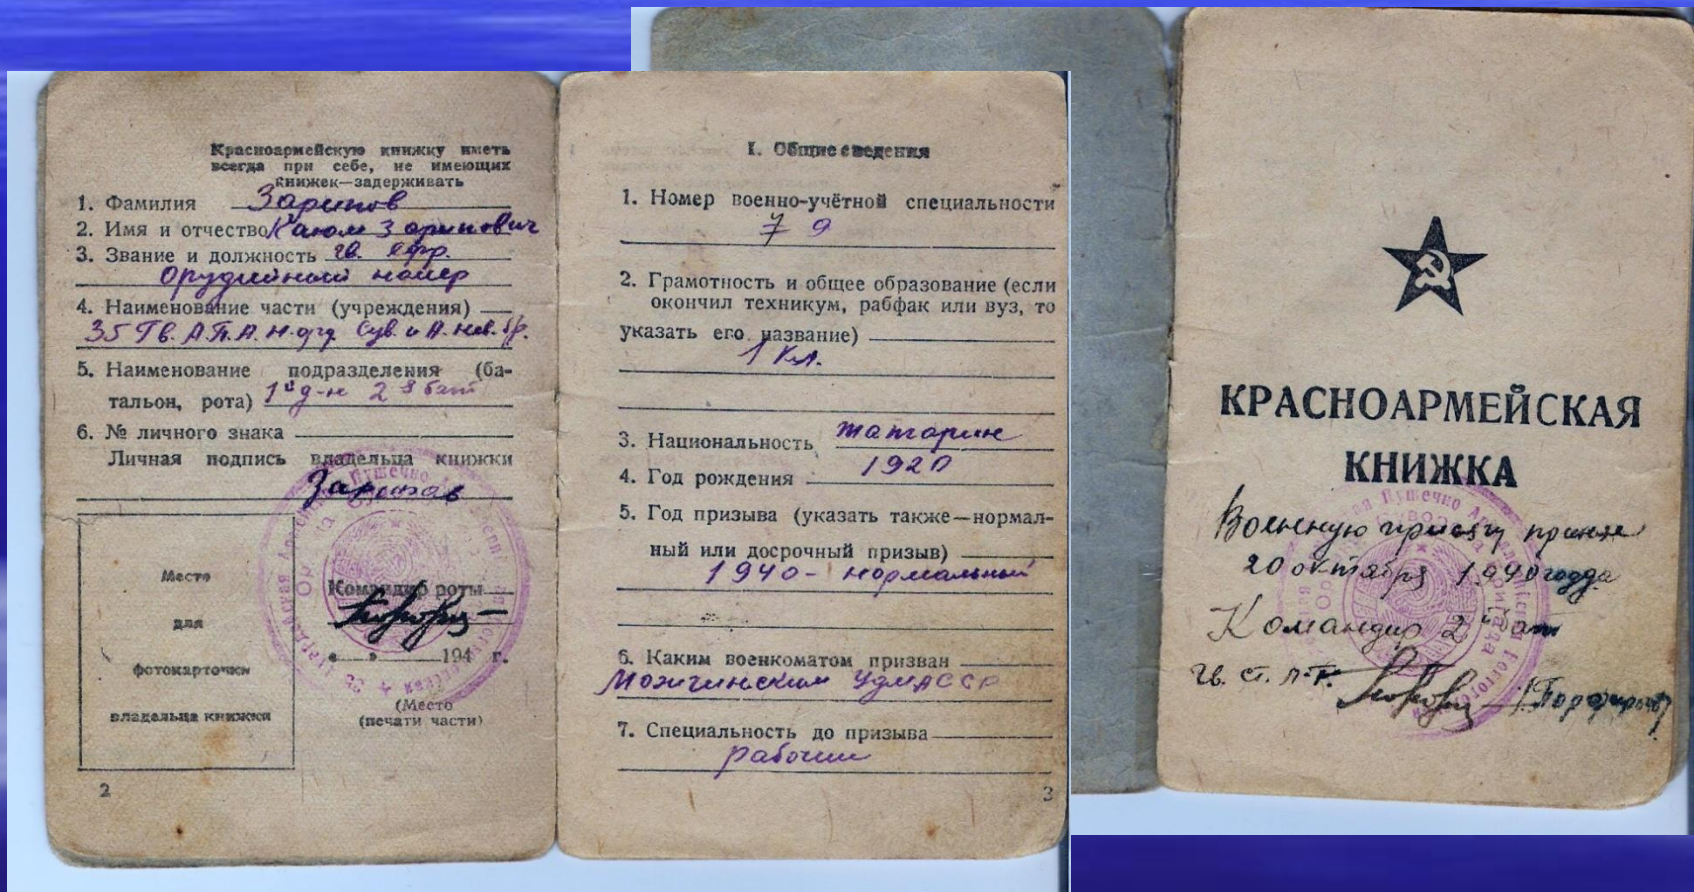 Красноармейскую книжку иметь
всегда при себе, не имеющих
книжек—задерживать
1. Фамилия Зарипов
2. Имя и отчество Каюм Зарипович
3. Звание и должность гв. ефр.
Орудийный номер
4. Наименование части (учреждения)
35 Гв. А.П.А. Сув. и А. Нев. бр.
5. Наименование подразделения (ба-
тальон, рота) 1й д-н 2 я бат
6. № личного знака
Личная подпись владельца книжки
Зарипов
Место
для
фотокарточки
владельца книжки
Командир роты
„ “ 194 г.
(Место
(печати части)
2
I. Общие сведения
1. Номер военно-учётной специальности
79
2. Грамотность и общее образование (если
окончил техникум, рабфак или вуз, то
указать его название)
1 кл.
3. Национальность татарин
4. Год рождения 1920
5. Год призыва (указать также—нормал-
ный или досрочный призыв)
1940 - нормальный
6. Каким военкоматом призван
Можгинским УдмАССР
7. Специальность до призыва
рабочий
3
КРАСНОАРМЕЙСКАЯ
КНИЖКА
Военную присягу принял
20 октября 1940 года
Командир 2й бат
Гв. ст. л-т.